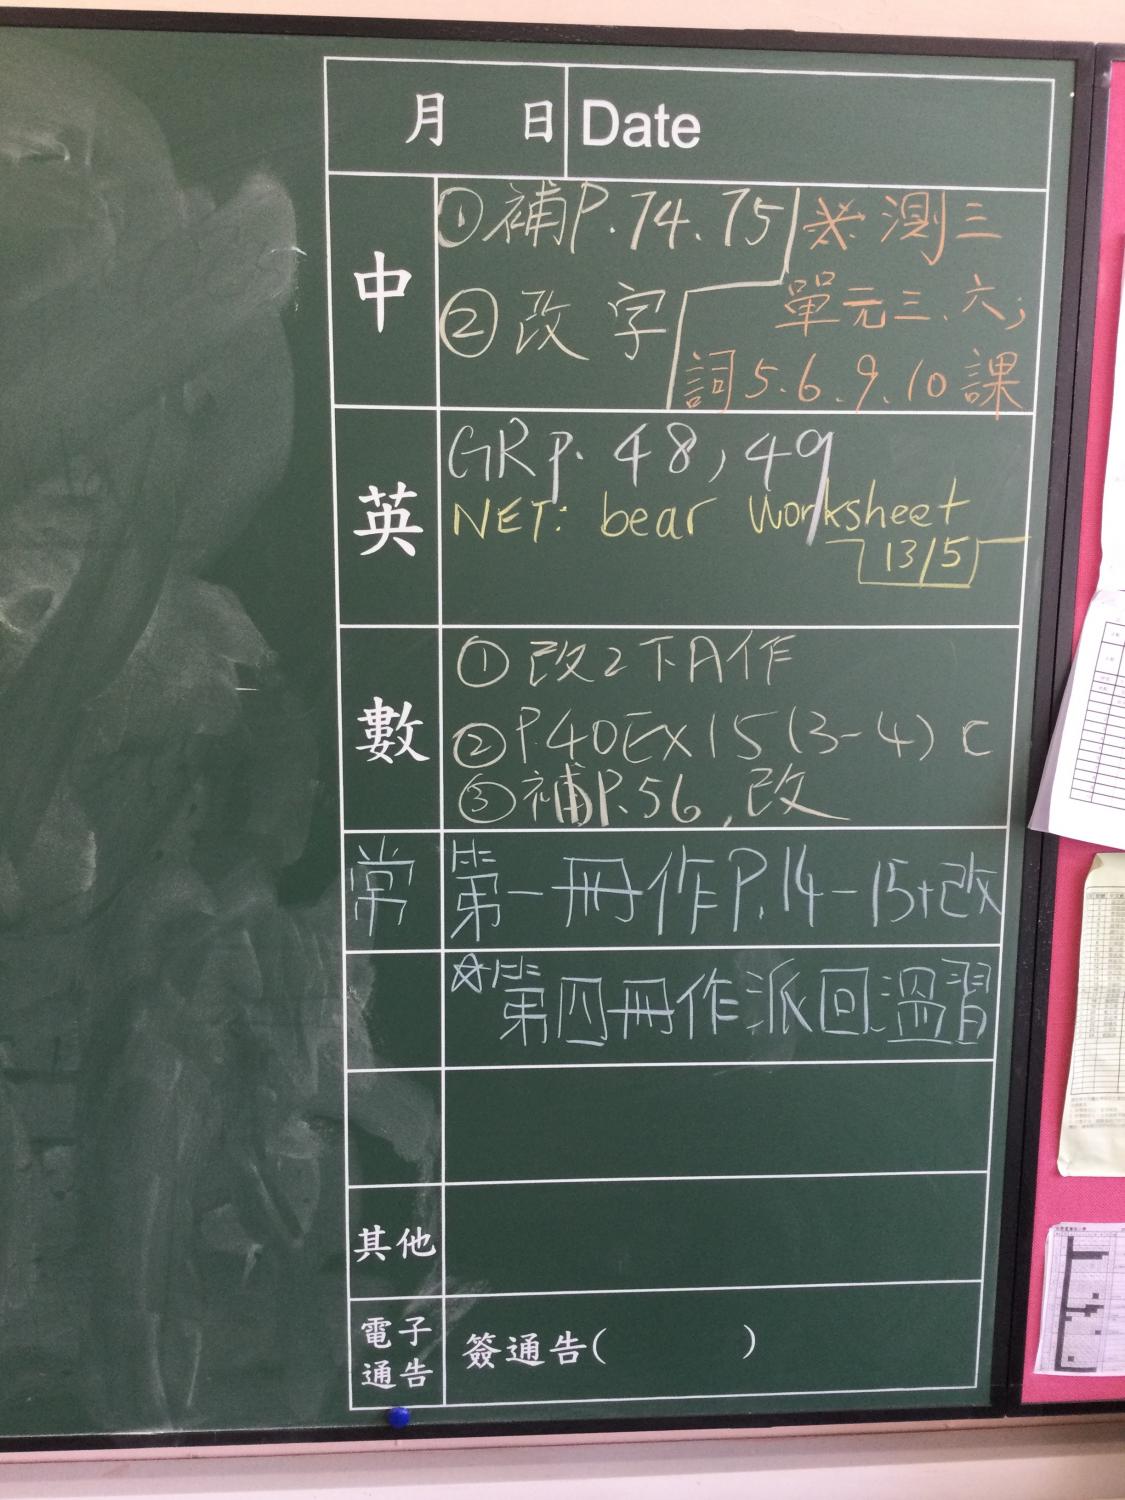 月 日 Date
中
①補P.74、75
※測三
②改字
單元三、六;
詞5.6.9.10課
英
GR p. 48, 49
NET: bear worksheet
13/5
數
①改2下A作
②P.40EX15(3-4) C
③補P.56,改
常
第一冊作P.14-15+改
☆第四冊作派回溫習
其他
電子
通告
簽通告( )